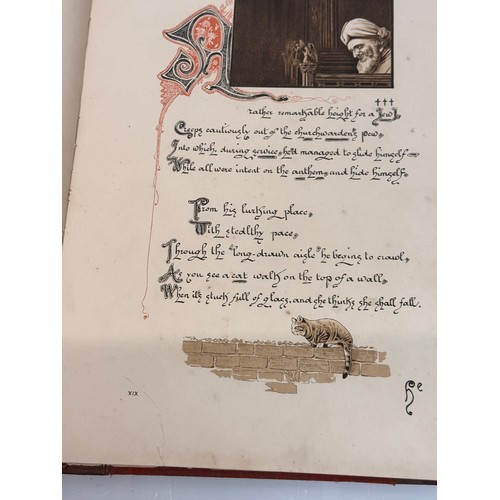 A
rather remarkable height for a Jew
Creeps cautiously out of the churchwarden's pew,
Into which, during service, he'd managed to slide himself—
While all were intent on the anthem, and hide himself.
From his lurking place,
With stealthy pace,
Through the "long-drawn aisle" he begins to crawl,
As you see a cat walk on the top of a wall,
When it's stuck full of glass, and she thinks she shall fall.
He
XIX